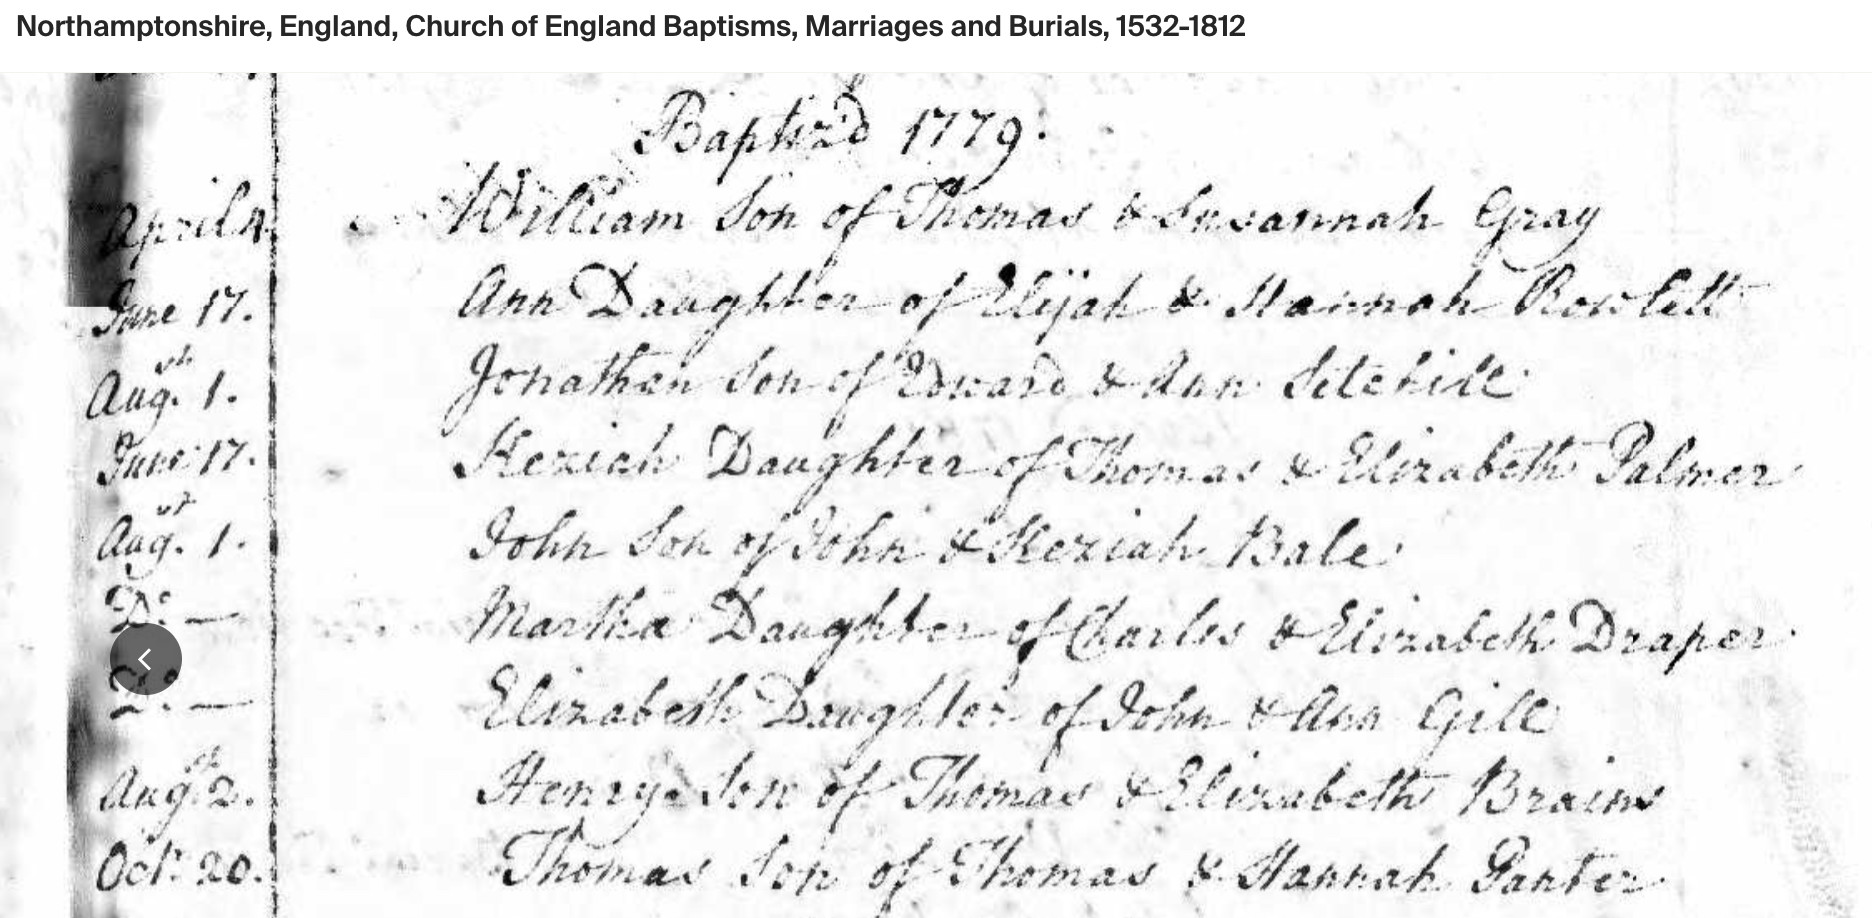 Northamptonshire, England, Church of England Baptisms, Marriages and Burials, 1532-1812
Baptiz'd 1779.
April 4. William Son of Thomas & Susannah Gray
June 17. Ann Daughter of Elijah & Hannah Rowlett
Augst. 1. Jonathan Son of Edward & Ann Letchill
June 17. Keziah Daughter of Thomas & Elizabeth Palmer
Augst. 1. John Son of John & Keziah Bale
Do. — Martha Daughter of Charles & Elizabeth Draper
Do. — Elizabeth Daughter of John & Ann Gill
Augst 2. Henry Son of Thomas & Elizabeth Brains
Octr. 20. Thomas Son of Thomas & Hannah Panter